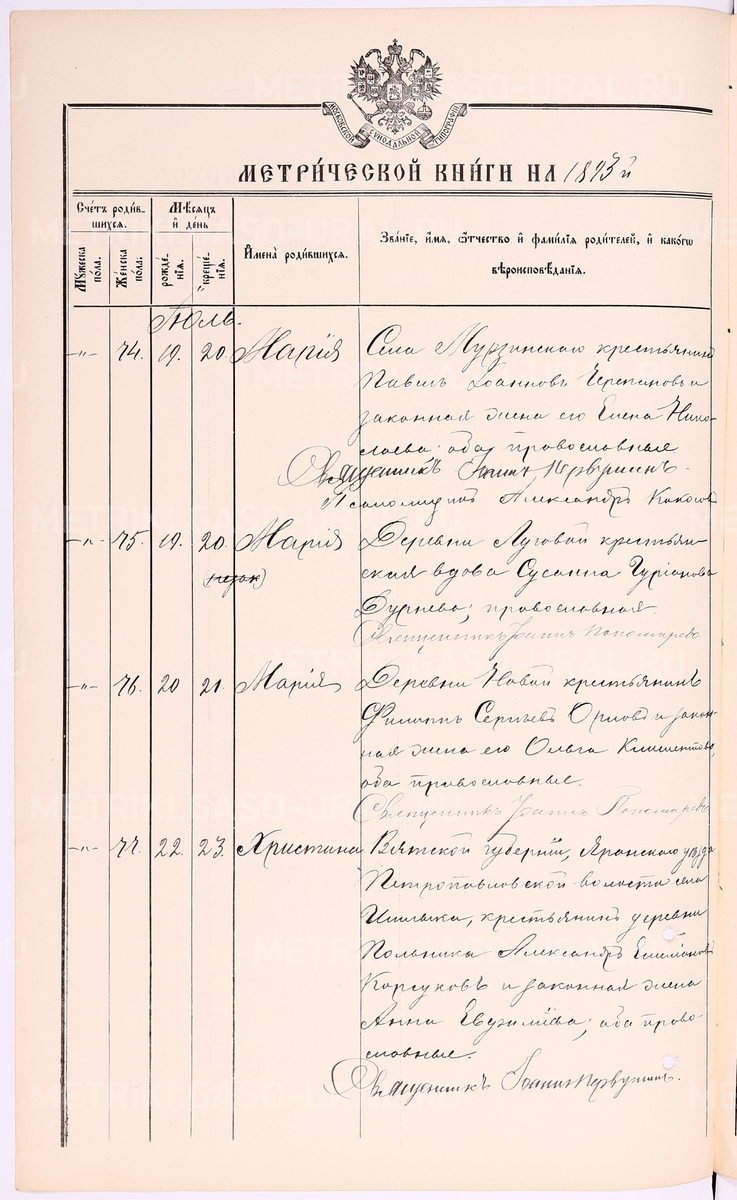 МОСКОВСКОЙ СѴНОДАЛЬНОЙ ТИПОГРАФІИ
МЕТРИ́ЧЕСКОЙ КНИ́ГИ НА 1893й
Сче́тъ роди́в-
шихся.
Мѣ́сяцъ
и́ де́нь
Мꙋжеска
пола.
Же́нска
пола.
рожде́-
нїѧ.
креще́-
нїѧ.
И҆мена̀ роди́вшихся.
Зва́нїе, и҆́мѧ, ѻ҆́тчество и҆ фамилїѧ роди́телей, и҆ како́гѡ
вѣроисповѣ́данїѧ.
Іюль.
-"- 74. 19. 20. Марія Села Мурзинскаго крестьянинъ
Павелъ Іоанновъ Черепановъ и
законная жена его Елена Нико-
лаева; оба православные.
Священникъ Іоаннъ Первушинъ.
Псаломщикъ Александръ Кокосовъ
-"- 75. 19. 20. Марія Деревни Луговой крестьян-
ская вдова Сусанна Гуріанова
Бурнева; православная.
Священникъ Іоаннъ Пономаревъ
-"- 76. 20 21. Марія Деревни Новой крестьянинъ
Филиппъ Сергіевъ Орловъ и закон-
ная жена его Ольга Климентова,
оба православные.
Священникъ Іоаннъ Пономаревъ
-"- 77. 22. 23. Христина Вятской губерніи, Яранскаго уѣзда
Петропавловской волости села
крестьянинъ деревни
Польника Александръ
Корсуковъ и законная жена
Анна Евѳиміева; оба право-
славные.
Священникъ Іоаннъ Первушинъ.